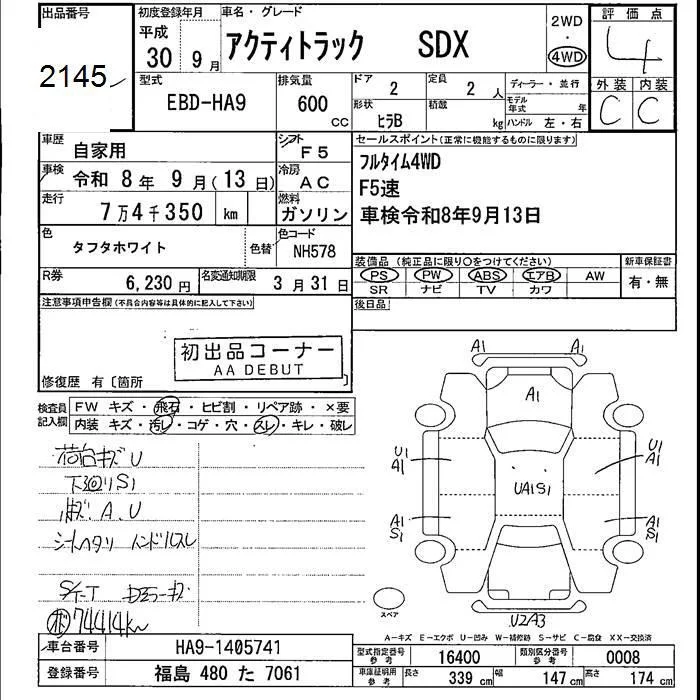 出品番号
2145
初度登録年月
平成
30年9月
車名・グレード
アクティトラック SDX
2WD
・
4WD
評価点
4
外装 内装
C C
型式
EBD-HA9
排気量
600
CC
ドア
2
定員
2 人
形状
ヒラB
積載
kg
ディーラー・並行
モデル年式 年
ハンドル 左・右
車歴
自家用
シフト
F5
車検
令和 8年 9月(13日)
冷房
AC
走行
7万4千350 km
燃料
ガソリン
色
タフタホワイト
色替
色コード
NH578
R券
6,230円
名変通知期限
3月31日
セールスポイント(正常に機能するものに限ります)
フルタイム4WD
F5速
車検令和8年9月13日
装備品(純正品に限り○をつけてください)
PS PW ABS エアB AW
SR ナビ TV カワ
新車保証書
有・無
後日品
注意事項申告欄(不具合内容等は具体的に記入して下さい)
初出品コーナー
AA DEBUT
修復歴 有〔箇所 〕
検査員記入欄
FW キズ・飛石・ヒビ割・リペア跡・×要
内装 キズ・汚レ・コゲ・穴・スレ・キレ・破レ
荷台キズU
下廻りS1
A.U
シートヘタリ ハンドルスレ
74414km
A1 A1
A1
U1
A1
U1
A1
UA1S1
A1
S1
A1
S1
U2A3
スペア
A-キズ E-エクボ U-凹み W-補修跡 S-サビ C-腐食 XX-交換済
車台番号
HA9-1405741
登録番号
福島 480 た 7061
型式指定番号
参考
16400
類別区分番号
参考
0008
車庫証明用
参考
長さ 339 cm
幅 147 cm
高さ 174 cm